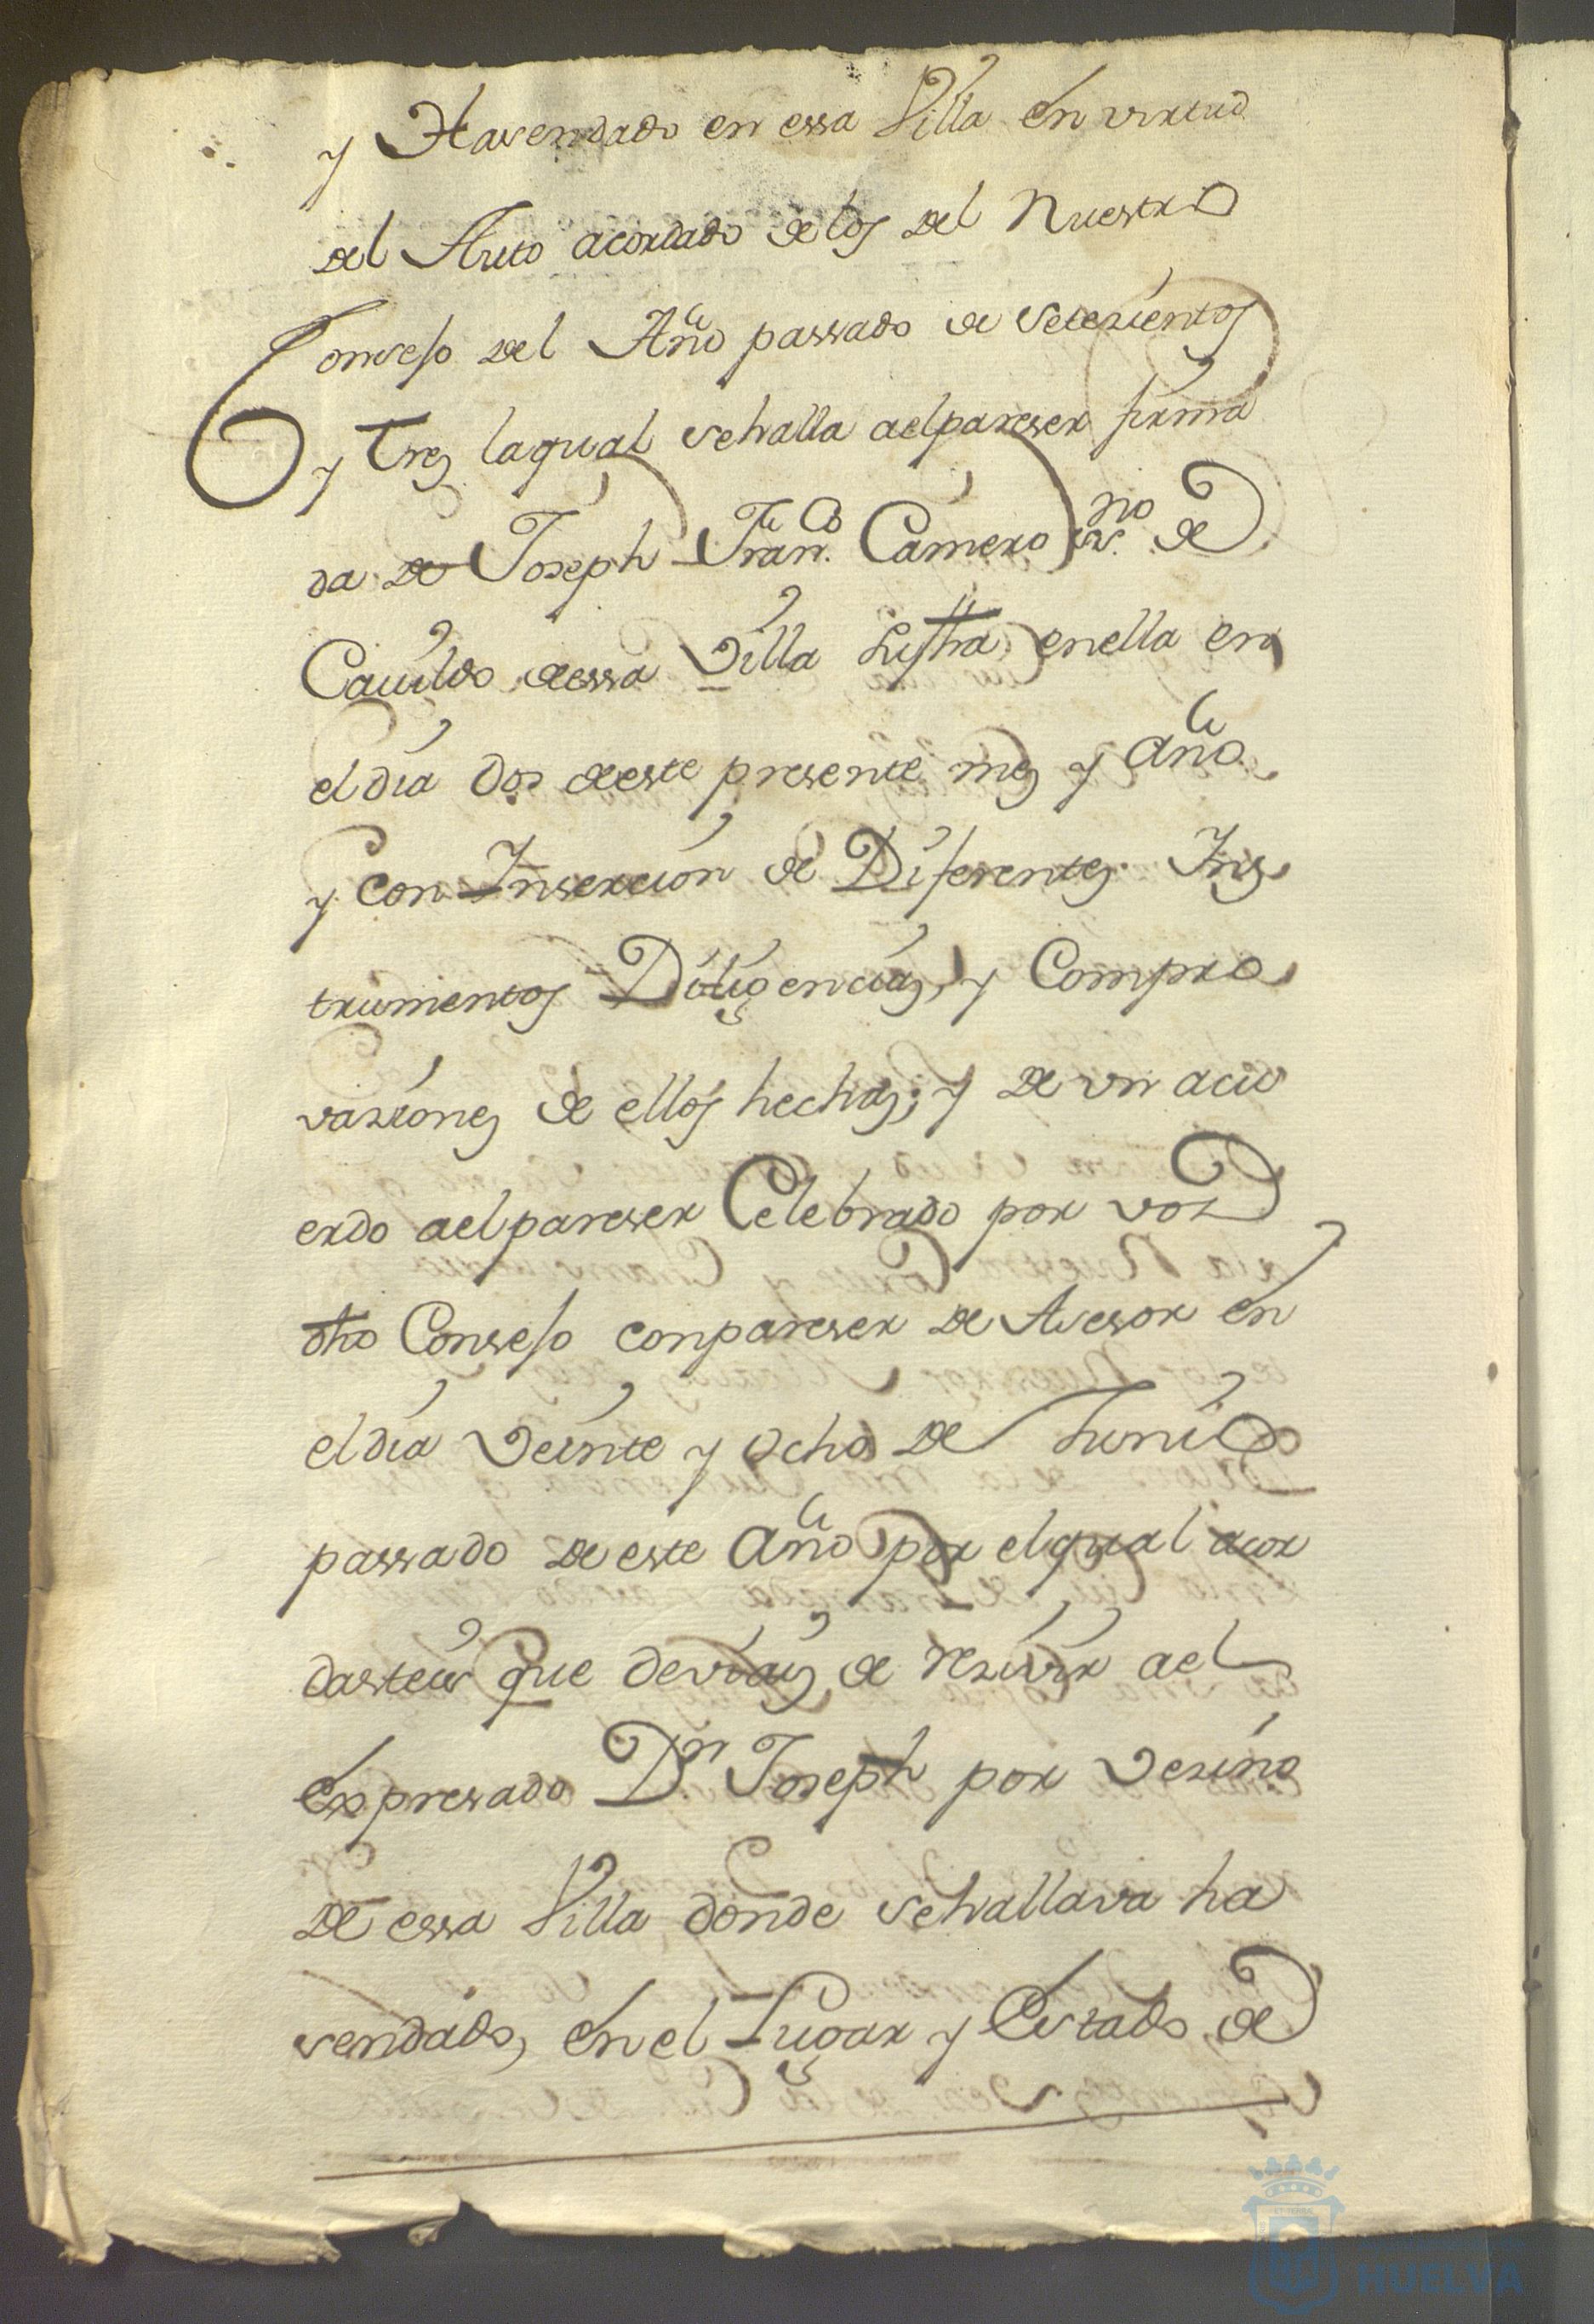 y Hasendado en essa Villa en virtud
del Auto acordado de los del Nuestro
Consejo del Año passado de setezientos
y tres la qual se halla ael pareser firma
da de Joseph Fran.co Camero ess.no de
Cavildo de essa Villa su fha en ella en
el dia dos de este presente mes y año
y con Inserción de Diferentes Ins
trumentos Diligencias, y Compro
vaziones de ellos hechas; y de un acu
erdo ael pareser Celebrado por vos
dho Consejo con pareser de Asesor en
el dia veinte y ocho de Junio
passado de este Año por el qual acor
dasteis que deviais de rezivir ael
expresado Dn Joseph por vezino
de essa Villa donde se hallava ha
sendado, en el Lugar y Estado de
HUELVA